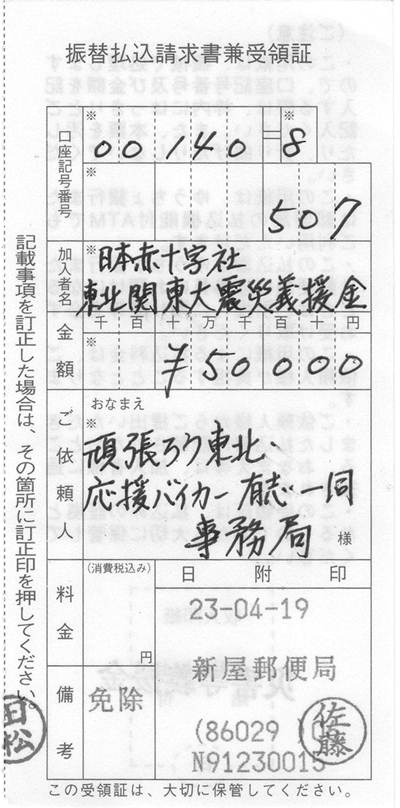 振替払込請求書兼受領証
口座記号番号
※ 00140=※8
※ 507
加入者名
※ 日本赤十字社
東北関東大震災義援金
金額
千百十万千百十円
※ ¥50000
ご依頼人
おなまえ
※
頑張ろう東北・
応援バイカー有志一同
事務局 様
料金
(消費税込み)
円
備考
免除
日附印
23-04-19
新屋郵便局
(86029)
N91230015
佐藤
この受領証は、大切に保管してください。
記載事項を訂正した場合は、その箇所に訂正印を押してください。